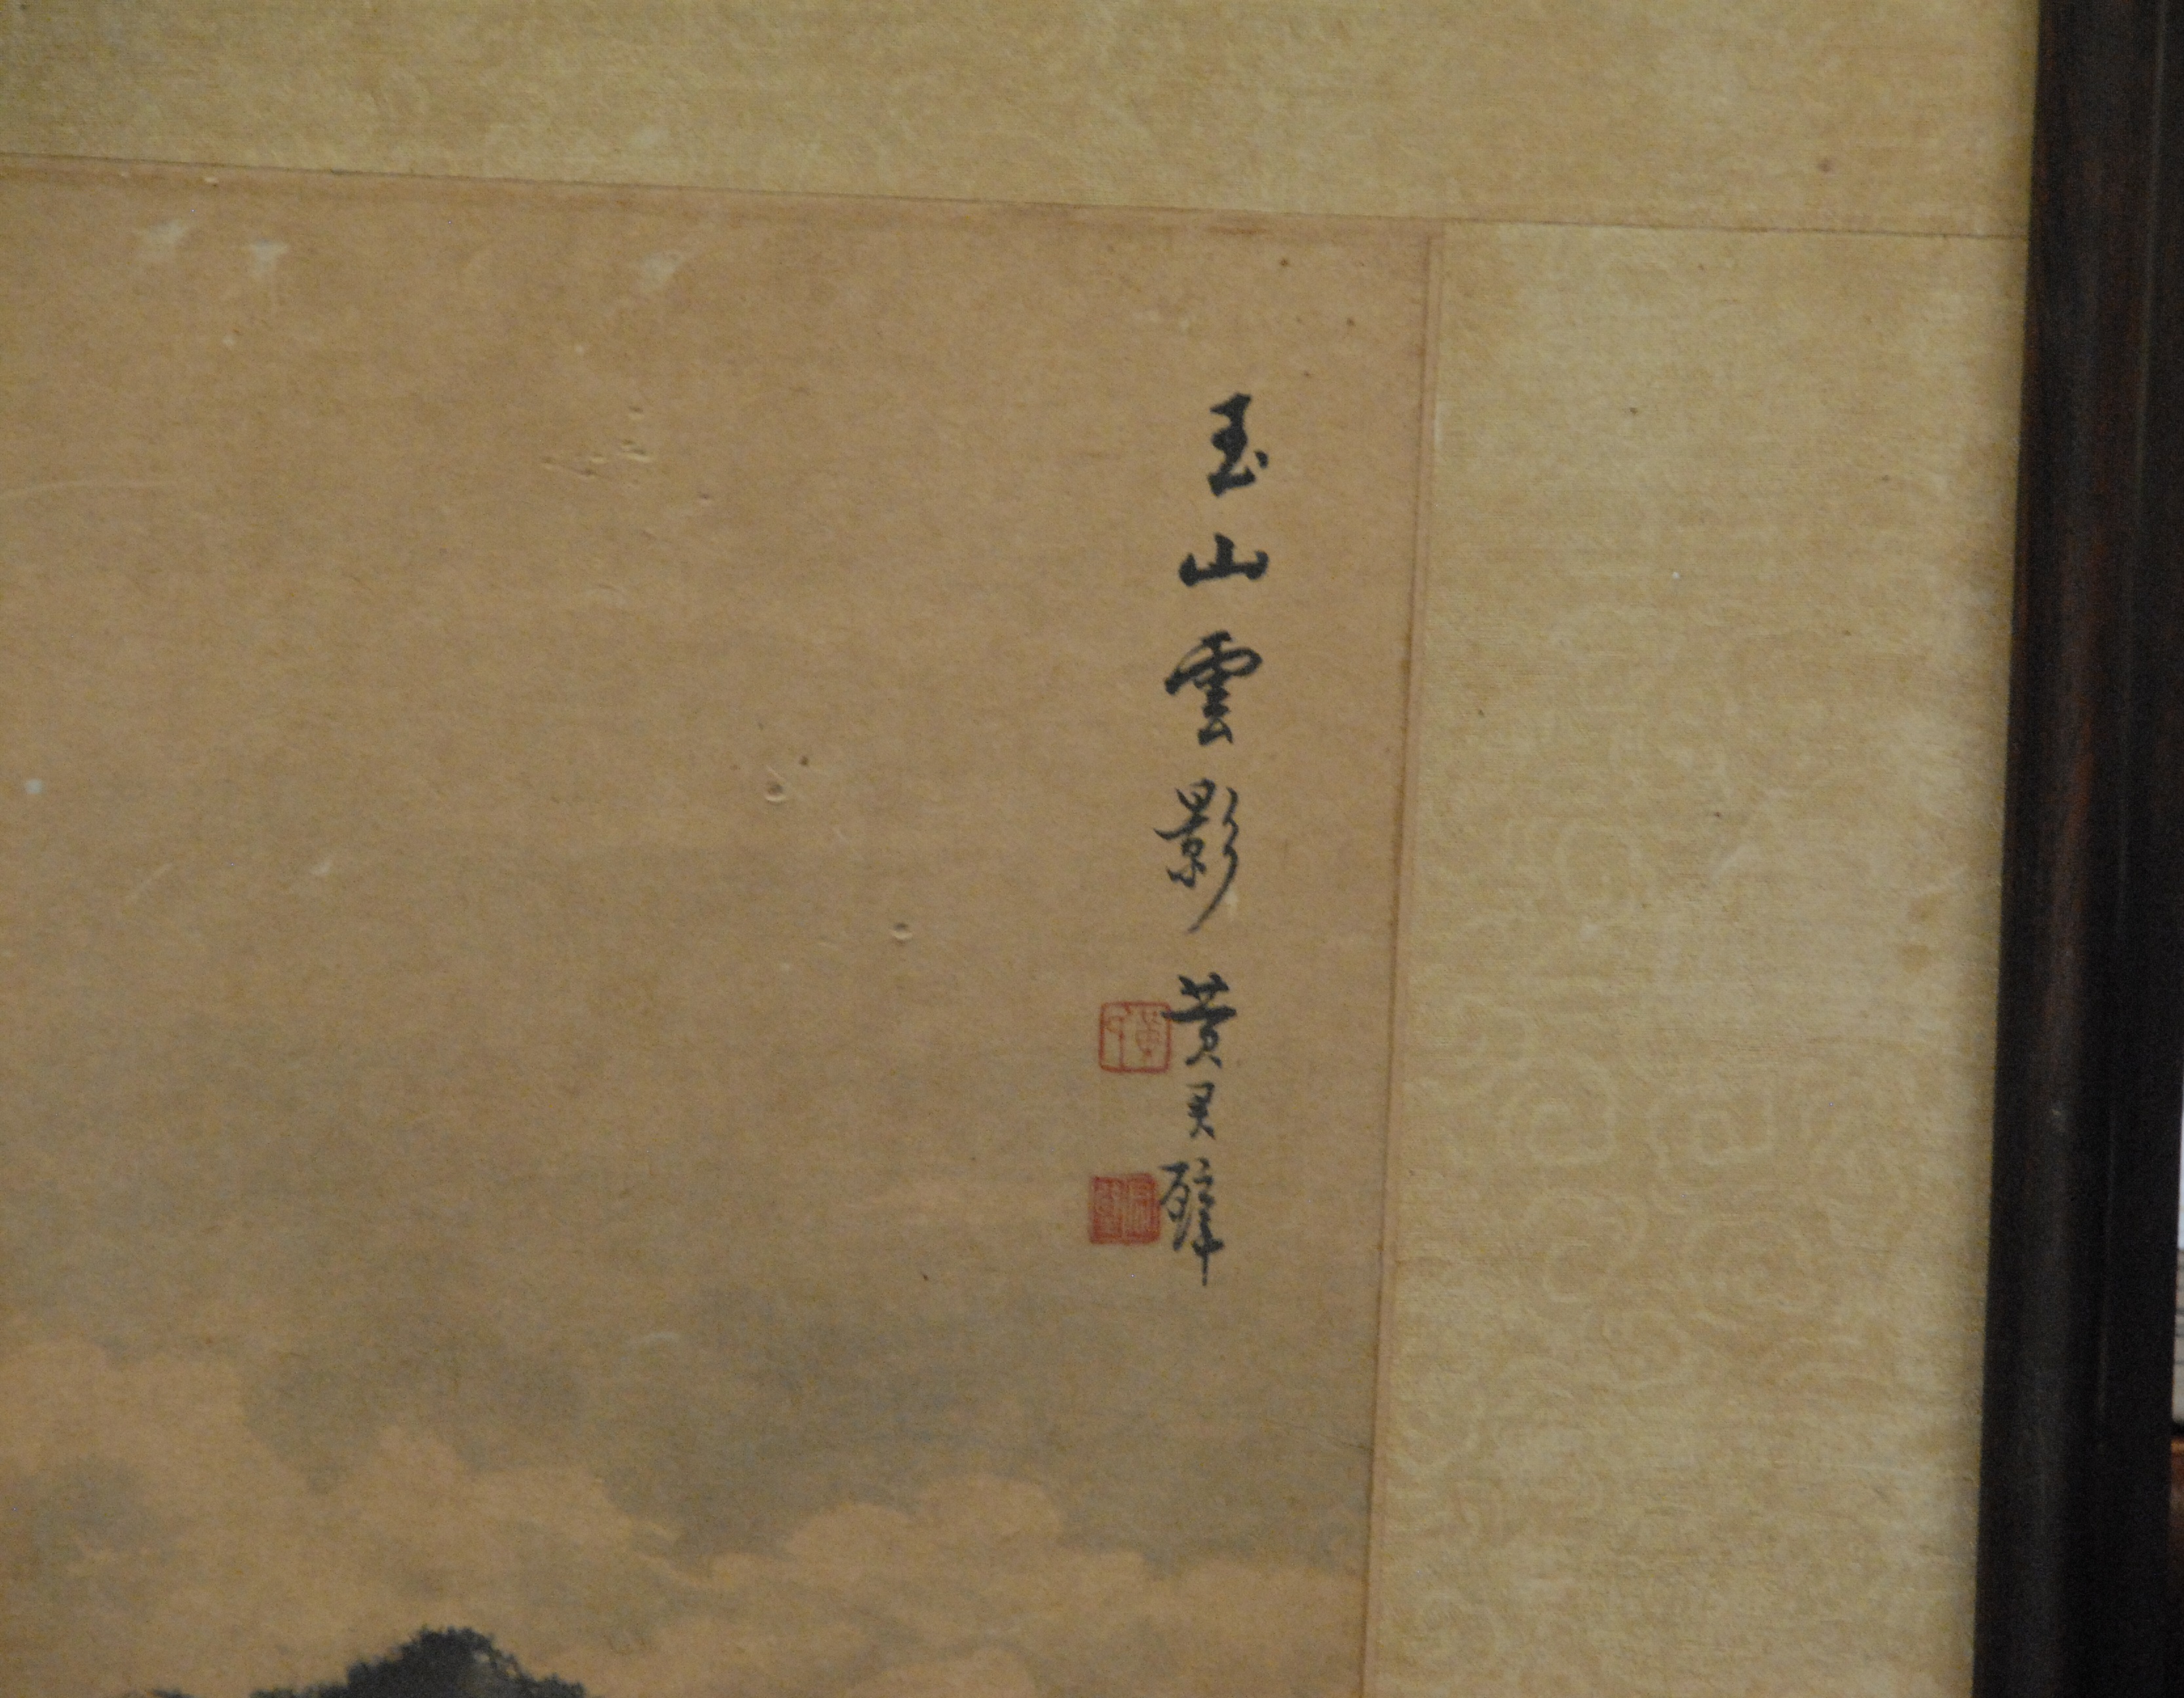 玉山雲影 黃君璧